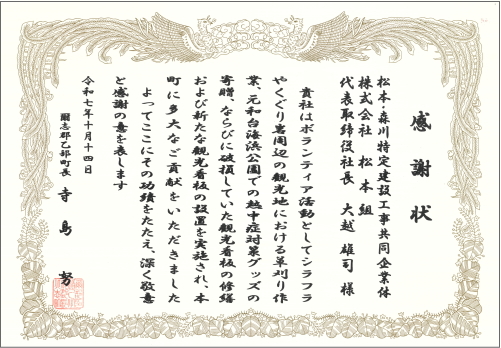 感謝状
松本・森川特定建設工事共同企業体
株式会社 松本組
代表取締役社長 大越 雄司 様
貴社はボランティア活動としてシラフラ
やくぐり岩周辺の観光地における草刈り作
業、元和台海浜公園での熱中症対策グッズの
寄贈、ならびに破損していた観光看板の修繕
および新たな観光看板の設置を実施され、本
町に多大なご貢献をいただきました
よってここにその功績をたたえ、深く敬意
と感謝の意を表します
令和七年十月十四日
爾志郡乙部町長 寺島 努